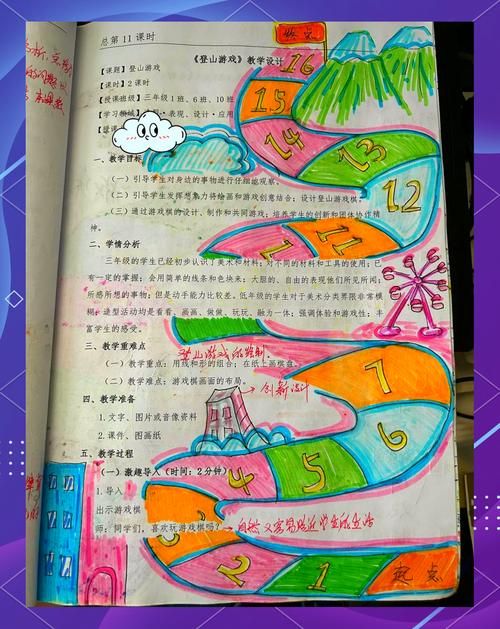 总第 11 课时
《登山游戏》教学设计
终点
【课题】登山游戏
【课时】2 课时
【授课班级】三年级 1 班、6 班、10 班
【学习领域】 表现、设计·应用
一、教学目标
（一）引导学生对身边的事物进行仔细地观察。
（二）引导学生发挥想象力将绘画和游戏创意结合；设计登山游戏棋。
（三）通过游戏棋的设计、制作和共同游戏；培养学生的创新和团体协作精
神。
二、学情分析
三年级的学生已经初步认识了美术和材料；对不同的材料和工具的使用；已
有一定的掌握；会用简单的线条和色块来；大胆的、自由的表现他们所见所闻；
所感所想的事物；但是动手能力比较差。低年级的学生对于美术分类界限非常模
糊；造型活动均是看看、画画、做做、玩玩、融为一体；强调体验和游戏性；丰
富学生的感受。
三、教学重难点
登山游戏的绘制
（一）教学重点：用线和形的组合；在纸上画棋盘。
（二）教学难点：游戏棋画面的布局。
→创新设计
四、教学准备
1.文字、图片或音像资料
2.课件、图画纸
五、教学过程
（一）激趣导入（时间：2 分钟）
1.导入
出示游戏棋
师：同学们，喜欢玩游戏棋吗？
→自然又容易贴近学生的生活
16
15
14
13
12
11
7
6
5
4
3
2
1
起点